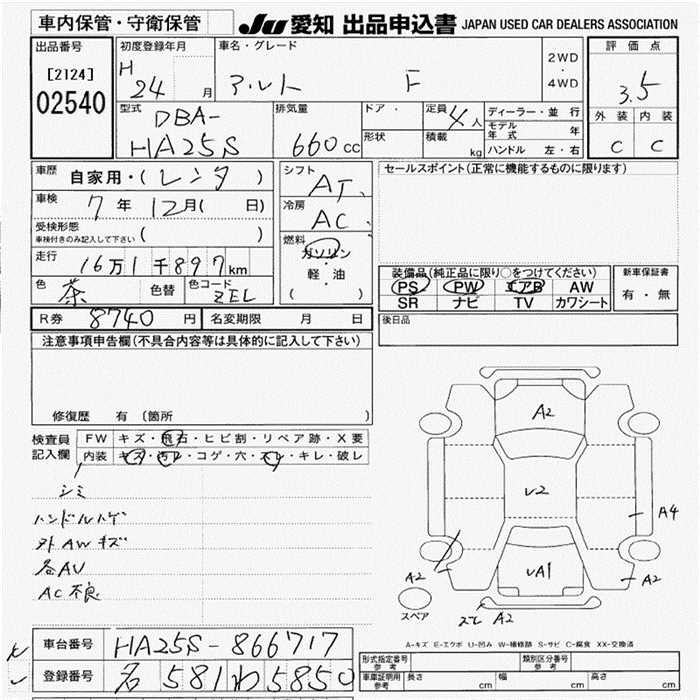 車内保管・守衛保管
JU 愛知 出品申込書 JAPAN USED CAR DEALERS ASSOCIATION
出品番号
[2124]
02540
初度登録年月
H 24 月
車名・グレード
アルト F
2WD
・
4WD
評価点
3.5
外装 内装
C C
型式
DBA-
HA25S
排気量
660 cc
ドア・
形状
定員 4人
積載 kg
ディーラー・並行
モデル年式 年
ハンドル 左・右
車歴
自家用・(レンタ)
車検
7年12月( 日)
受検形態
車検付きのみ記入して下さい ( )
走行
16万1千897km
色 茶 色替
色コード
ZEL
シフト
AT
冷房
AC
燃料
ガソリン
・
軽・油
( )
セールスポイント(正常に機能するものに限ります)
装備品(純正品に限り○をつけてください)
PS PW エアB AW
SR ナビ TV カワシート
新車保証書
有・無
R券 8740円
名変期限 月 日
後日品
注意事項申告欄(不具合内容等は具体的に記入して下さい)
修復歴 有(箇所
検査員記入欄
FW キズ・飛石・ヒビ割・リペア跡・X要
内装 キズ・汚レ・コゲ・穴・スレ・キレ・破レ
シミ
ハンドルハゲ
外AWキズ
各AU
AC不良
A2
U2
A4
UA1
A2
A2
A2
スペア
A-キズ E-エクボ U-凹み W-補修跡 S-サビ C-腐食 XX-交換済
車台番号 HA25S-866717
登録番号 名 581わ5850
形式指定番号
参考
類別区分番号
参考
車庫証明用
参考
長さ cm
幅 cm
高さ cm